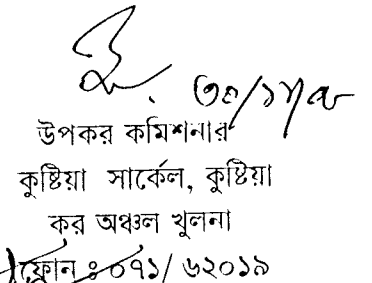 উপকর কমিশনার
কুষ্টিয়া সার্কেল, কুষ্টিয়া
কর অঞ্চল খুলনা
ফোন ঃ ০৭১/ ৬২০১৯